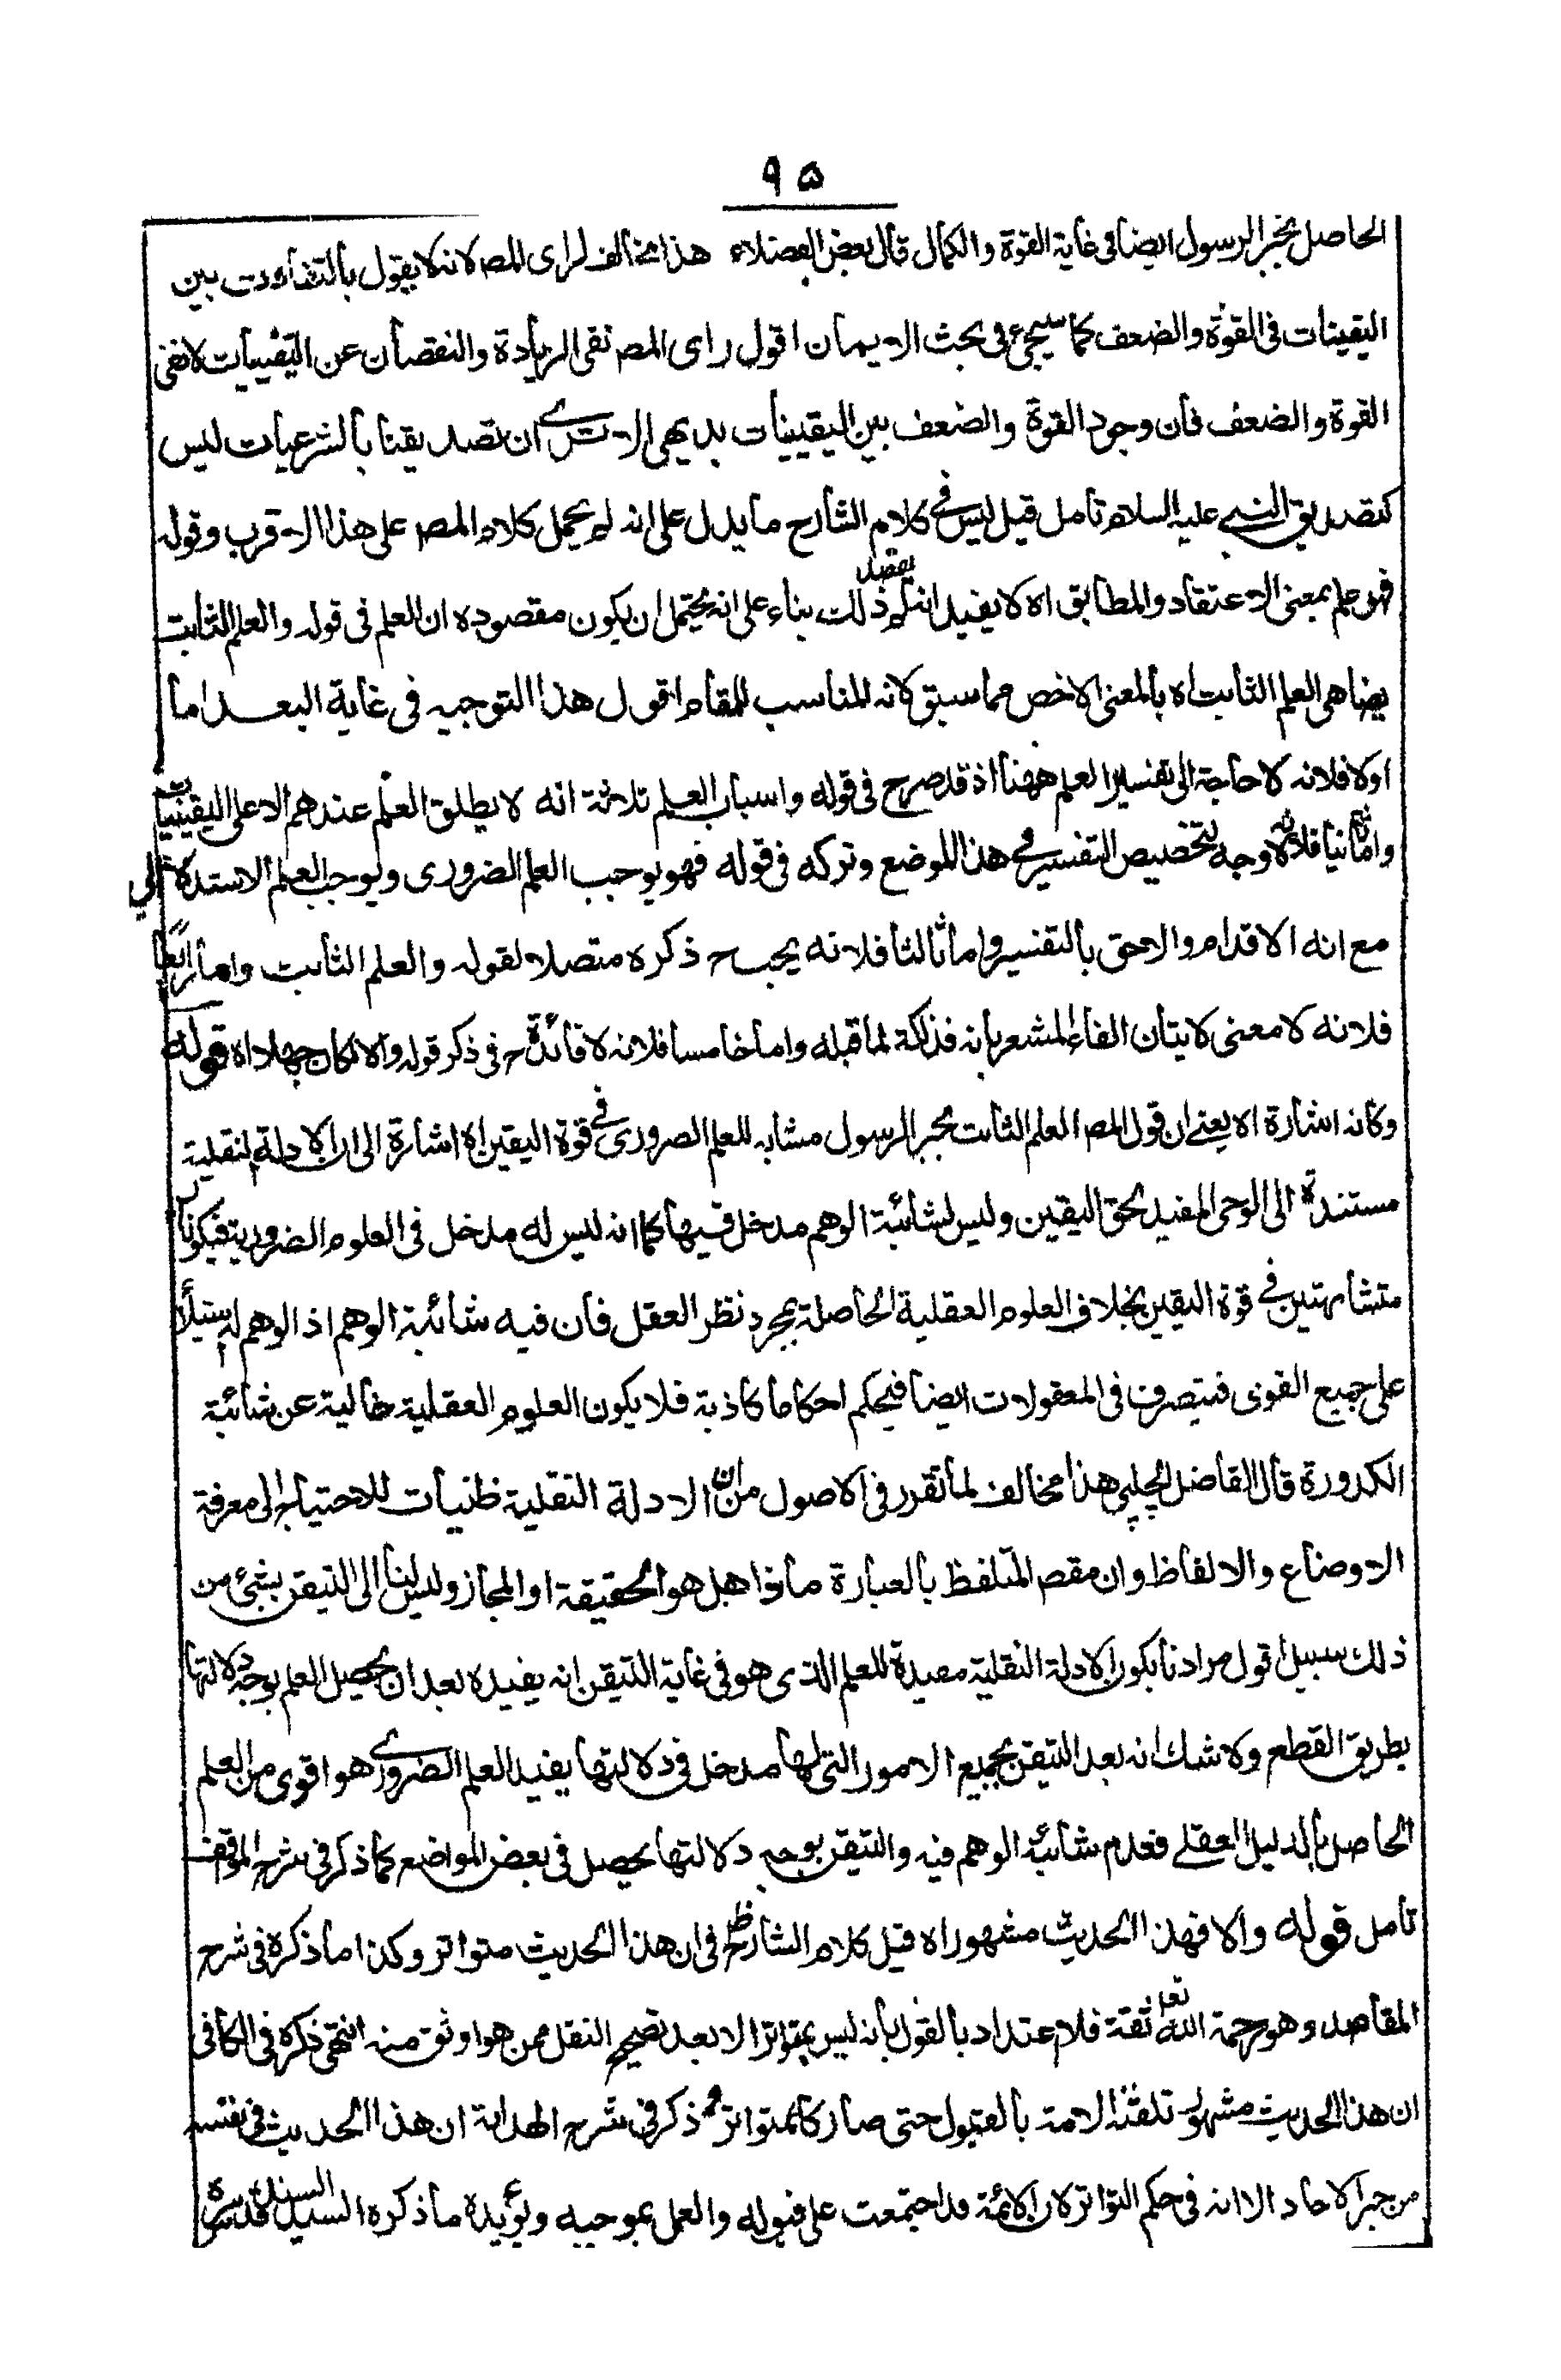 ٩٥
الحاصل بخبر الرسول ايضا فى غاية القوة والكمال قال بعض الفضلاء هذا مخالف لراى المصـ لانه لا يقول بالتفاوت بين
اليقينات فى القوة والضعف كما سيجئ فى بحث الايمان اقول راى المصـ نفى الزيادة والنقصان عن اليقينيات لا نفى
القوة والضعف فان وجود القوة والضعف بين اليقينيات بديهى الا ترى ان تصديقنا بالشرعيات ليس
كتصديق النبى عليه السلام تامل قيل ليس فى كلام الشارح ما يدل على انه لم يحمل كلام المصـ على هذا الاقرب وقوله
فهو علم بمعنى الاعتقاد والمطابق اه لا يفيد انه لم يقصد ذلك بناء على انه يحتمل ان يكون مقصوده ان العلم فى قوله والعلم الثابت
يضاهى العلم الثابت اه بالمعنى الاخص مما سبق لانه المناسب للمقام اقول هذا التوجيه فى غاية البعد اما
اولا فلانه لا حاجة الى تفسير العلم ههنا اذ قد صرح فى قوله واسباب العلم ثلاثة انه لا يطلق العلم عندهم الا على اليقينيات
واما ثانيا فلانه لا وجه لتخصيص التفسير فى هذا الموضع وتركه فى قوله فهو يوجب العلم الضرورى ويوجب العلم الاستدلالى
مع انه الاقدام والاحق بالتفسير واما ثالثا فلانه يجب ح ذكره متصلا لقوله والعلم الثابت واما رابعا
فلانه لا معنى لايتان الفاء المشعر بانه فذلكة لما قبله واما خامسا فلانه لا فائدة ح فى ذكر قوله والا لكان جهلا اه قوله
وكانه اشارة اه يعنى ان قول المصـ العلم الثابت بخبر الرسول مشابه للعلم الضرورى فى قوة اليقين اه اشارة الى ان الادلة النقلية
مستندة الى الوحى المفيد لحق اليقين وليس لشائبة الوهم مدخل فيها كما انه ليس له مدخل فى العلوم الضرورية فيكونان
متشابهتين فى قوة اليقين بخلاف العلوم العقلية الحاصلة بمجرد نظر العقل فان فيه شائبة الوهم اذ الوهم له استيلاء
على جميع القوى فيتصرف فى المعقولات ايضا فيحكم احكاما كاذبة فلا يكون العلوم العقلية خالية عن شائبة
الكدورة قال الفاضل الچلپى هذا مخالف لما تقرر فى الاصول من ان الادلة النقلية ظنيات للاحتياج الى معرفة
الاوضاع والالفاظ وان مقصـ المتلفظ بالعبارة ماذا هل هو الحقيقة او المجاز وليس لنا الى التيقن بشئ من
ذلك سبيل اقول مرادنا بكون الادلة النقلية مفيدة للعلم الذى هو فى غاية التيقن انه يفيده بعد ان يحصل العلم بوجه دلالتها
بطريق القطع ولا شك انه بعد التيقن بجميع الامور التى لها مدخل فى دلالتها يفيد العلم الضرورى هو اقوى من العلم
الحاصل بالدليل العقلى فعدم شائبة الوهم فيه والتيقن بوجه دلالتها يحصل فى بعض المواضع كما ذكر فى شرح المواقف
تامل قوله والا فهذا الحديث مشهور اه قيل كلام الشارح ظ فى ان هذا الحديث متواتر وكذا ما ذكره فى شرح
المقاصد وهو رحمة الله تعا ثقة فلا اعتداد بالقول بانه ليس بمتواتر الا بعد تصحيح النقل ممن هو اوثق منه انتهى ذكره فى الكافى
ان هذا الحديث مشهور تلقته الامة بالقبول حتى صار كالمتواتر وذكر فى شرح الهداية ان هذا الحديث فى نفسه
من خبر الاحاد الا انه فى حكم التواتر لان الائمة قد اجتمعت على قبوله والعمل بموجبه ويؤيده ما ذكره السيد السند قدس سره